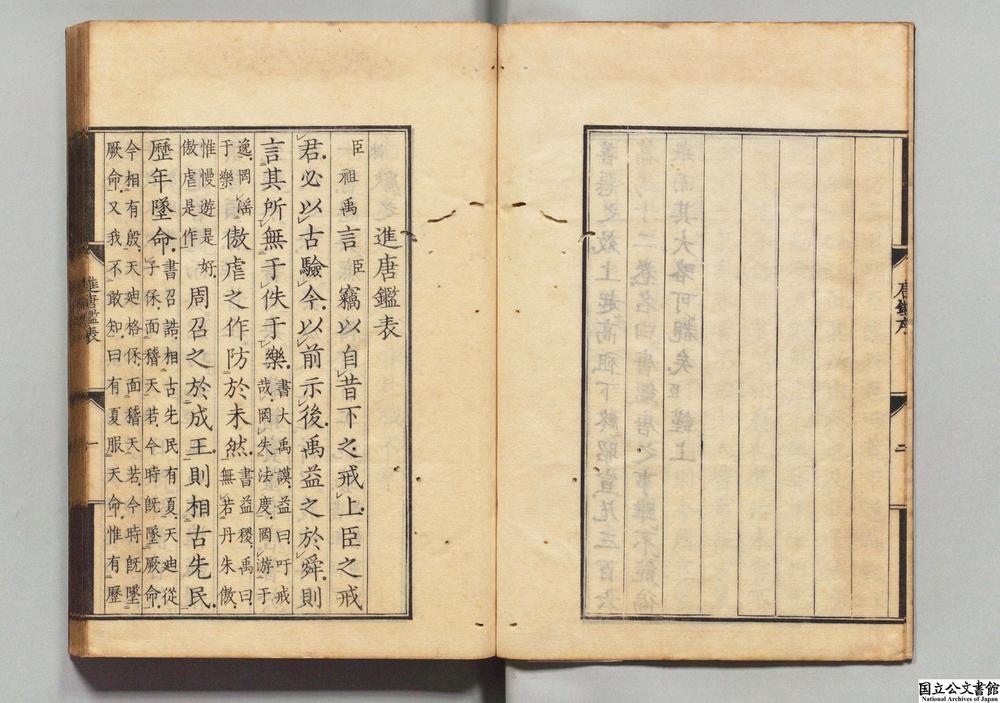 唐鑑序
二
進唐鑑表
臣祖禹言臣竊以自昔下之戒上臣之戒
君必以古驗今以前示後禹益之於舜則
言其所無于佚于樂書大禹謨益曰吁戒
哉罔失法度罔游于
逸罔滛
于樂傲虐之作防於未然書益稷禹曰
無若丹朱傲
惟慢遊是好
傲虐是作周召之於成王則相古先民
歷年墜命書召誥相古先民有夏天迪從
子保面稽天若今時既墜厥命
今相有殷天迪格保面稽天若今時既墜
厥命又我不敢知曰有夏服天命惟有歷
進唐鑑表
一
国立公文書館
National Archives of Japan